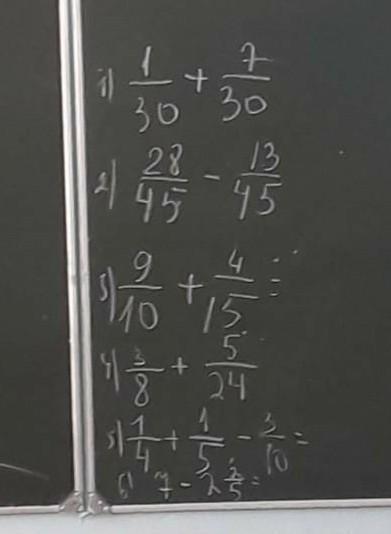 1) 1/30 + 7/30
2) 28/45 - 13/45
3) 9/10 + 4/15 =
4) 3/8 + 5/24
5) 1/4 + 1/5 - 3/10 =
6) 7 - 2 2/5 =